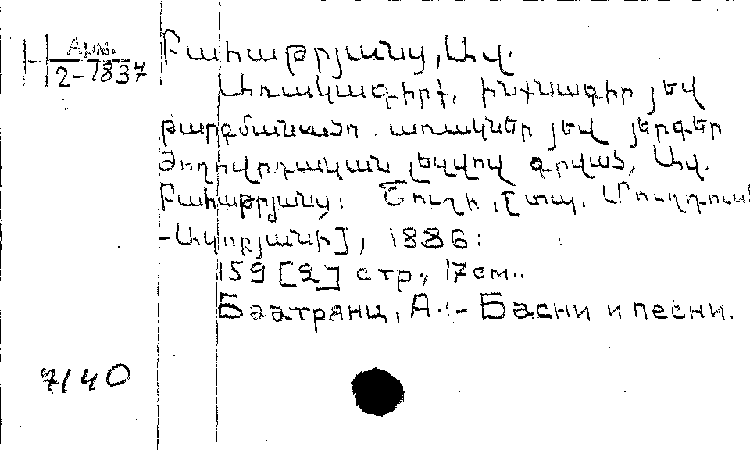 Арм.
2-1837
Բահաթրյանց, Ավ.
Առակագիրք, ինքնագիր յեվ
թարգմանածո առակներ յեվ յերգեր
ժողովրդական լեզվով գրված, Ավ.
Բահաթրյանց: Շուշի, [տպ.
-Հակոբյանի], 1886:
159 [2] стр., 17см..
Баатрянц, А. - Басни и песни.
7140